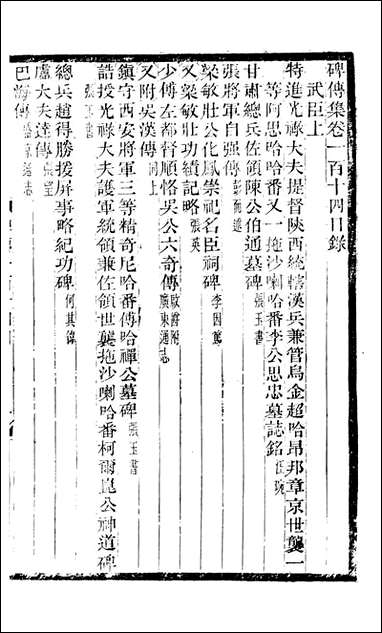 碑傳集卷一百十四目錄
武臣上
特進光祿大夫提督陝西統轄漢兵兼管烏金超哈昂邦章京世襲一
等阿思哈哈番又一拖沙喇哈番李公思忠墓誌銘汪琬
甘肅總兵佐領陳公伯通墓碑張玉書
張將軍自强傳彭而述
梁敏壯公化鳳崇祀名臣祠碑李因篤
又梁敏壯功績記略張英
少傅左都督順恪吳公六奇傳廣東通志
又附吳漢傳同上
鎮守西安將軍三等精奇尼哈番傅哈禪公墓碑張玉書
誥授光祿大夫護軍統領兼佐領世襲拖沙喇哈番柯爾崑公神道碑
張玉書
總兵趙得勝援屏事略紀功碑何其偉
盧大夫達傳張望
巴海傳盛京通志